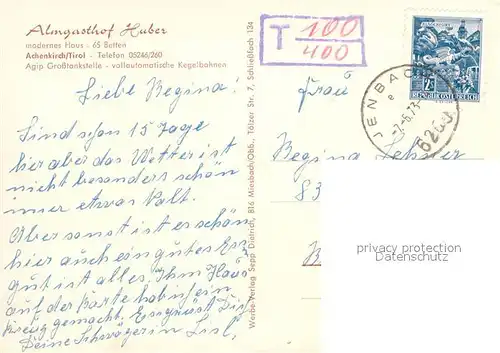 Almgasthof Huber
modernes Haus - 65 Betten
Achenkirch/Tirol - Telefon 05246/260
Agip Großtankstelle - vollautomatische Kegelbahnen
Liebe Regina!
Sind schon 15 Tage
hier aber das Wetter ist
nicht besonders schön
imer etwas kalt.
Aber sonst ist es schön
hier auch ein gutes Essen
gut ist alles. Ihm Haus
auf der Karte hab ich ein
Kreuz gemacht. Es grüst Dig
Deine Schwägerin Lisl.
Werbe-Verlag Sepp Dietrich, 816 Miesbach/Obb., Tölzer Str. 7, Schließfach 134
T 100
400
7 S
REPUBLIK ÖSTERREICH
JENBACH
e
-7.-6.73-
6200
Frau
Regina
83
privacy protection
DAResearch.COM